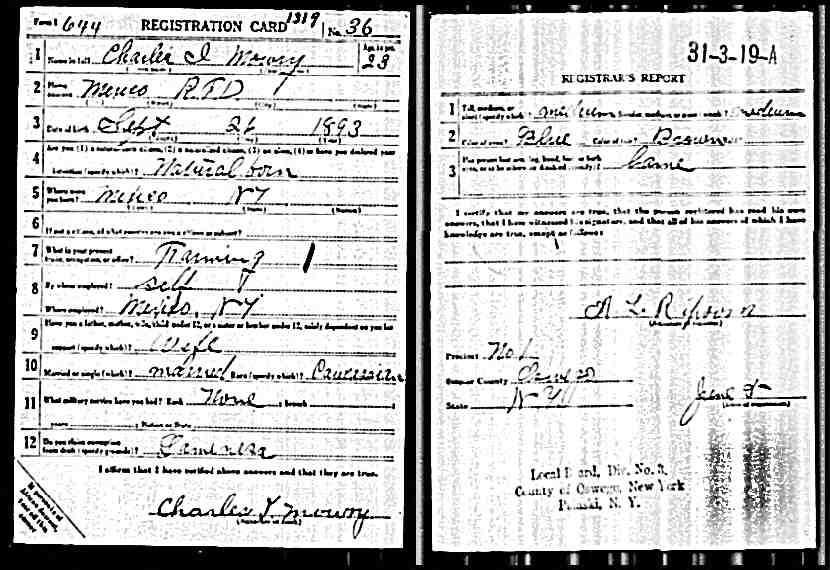 Form 1 644 REGISTRATION CARD 1319 No. 36
1 Name in full Charlie I Mowry Age, in yrs. 23
2 Home address Mexico RFD
3 Date of birth Sept 26 1893
4 Are you (1) a natural-born citizen, (2) a naturalized citizen, (3) an alien, (4) or have you declared your
intention (specify which)? Natural born
5 Where were you born? Mexico NY
6 If not a citizen, of what country are you a citizen or subject?
7 What is your present trade, occupation, or office? Farming
8 By whom employed? Self
Where employed? Mexico, NY
9 Have you a father, mother, wife, child under 12, or a sister or brother under 12, solely dependent on you for
support (specify which)? Wife
10 Married or single (which)? married Race (specify which)? Caucasian
11 What military service have you had? Rank None ; branch
years ; Nation or State
12 Do you claim exemption from draft (specify grounds)? Lameness
I affirm that I have verified above answers and that they are true.
Charles I Mowry
If person is of African descent, tear off this corner
31-3-19-A
REGISTRAR'S REPORT
1 Tall, medium, or short (specify which)? medium Slender, medium, or stout (which)? medium
2 Color of eyes? Blue Color of hair? Brown
3 Has person lost arm, leg, hand, foot, or both eyes, or is he otherwise disabled (specify)? Lame
I certify that my answers are true, that the person registered has read his own
answers, that I have witnessed his signature, and that all of his answers of which I have
knowledge are true, except as follows:
Precinct No 1
County Oswego
State N Y June 5
Local Board, Div. No. 3,
County of Oswego, New York
Pulaski, N. Y.